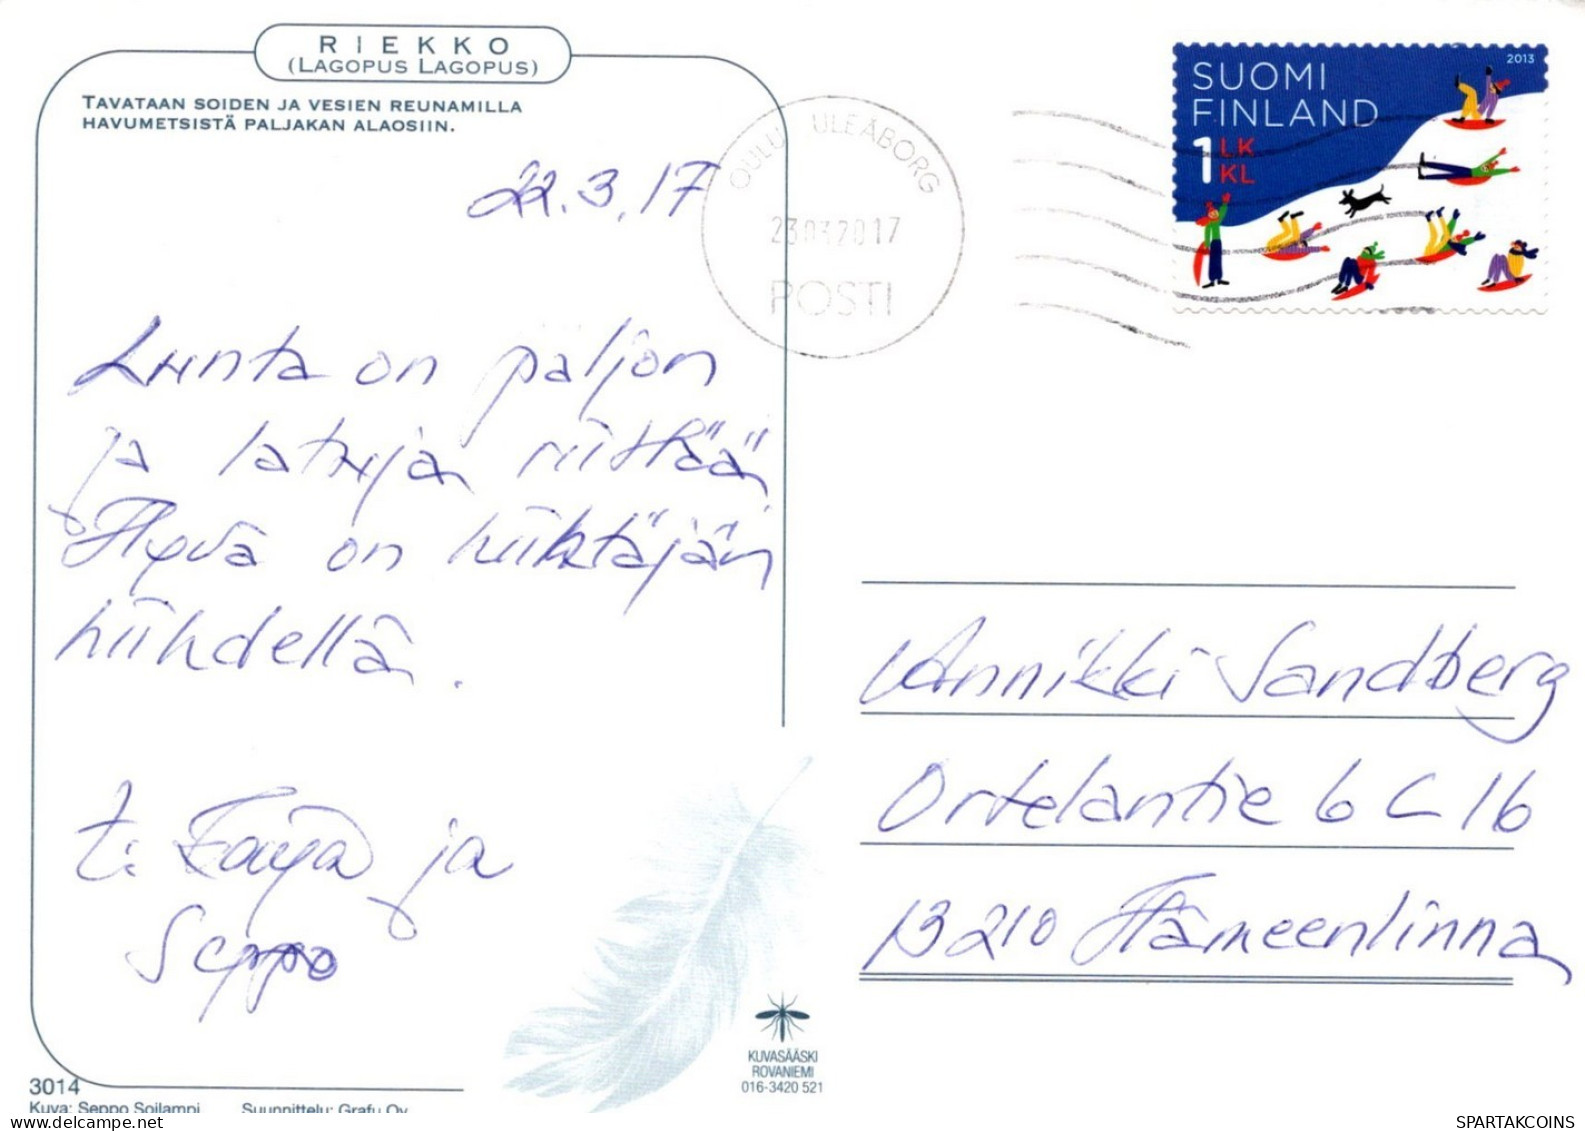 RIEKKO
(LAGOPUS LAGOPUS)
TAVATAAN SOIDEN JA VESIEN REUNAMILLA
HAVUMETSISTÄ PALJAKAN ALAOSIIN.
22.3.17
Lunta on paljon
ja latuja riittää
Hyvä on hiihtäjän
hiihdellä.
t: ja
Seppo
3014
Kuva: Seppo Soilampi Suunnittelu: Grafu Oy
KUVASÄÄSKI
ROVANIEMI
016-3420 521
OULU ULEÅBORG
23032017
POSTI
2013
SUOMI
FINLAND
1 LK
KL
Annikki Sandberg
Ortelantie 6 C 16
13210 Hämeenlinna
SPARTAKCOINS